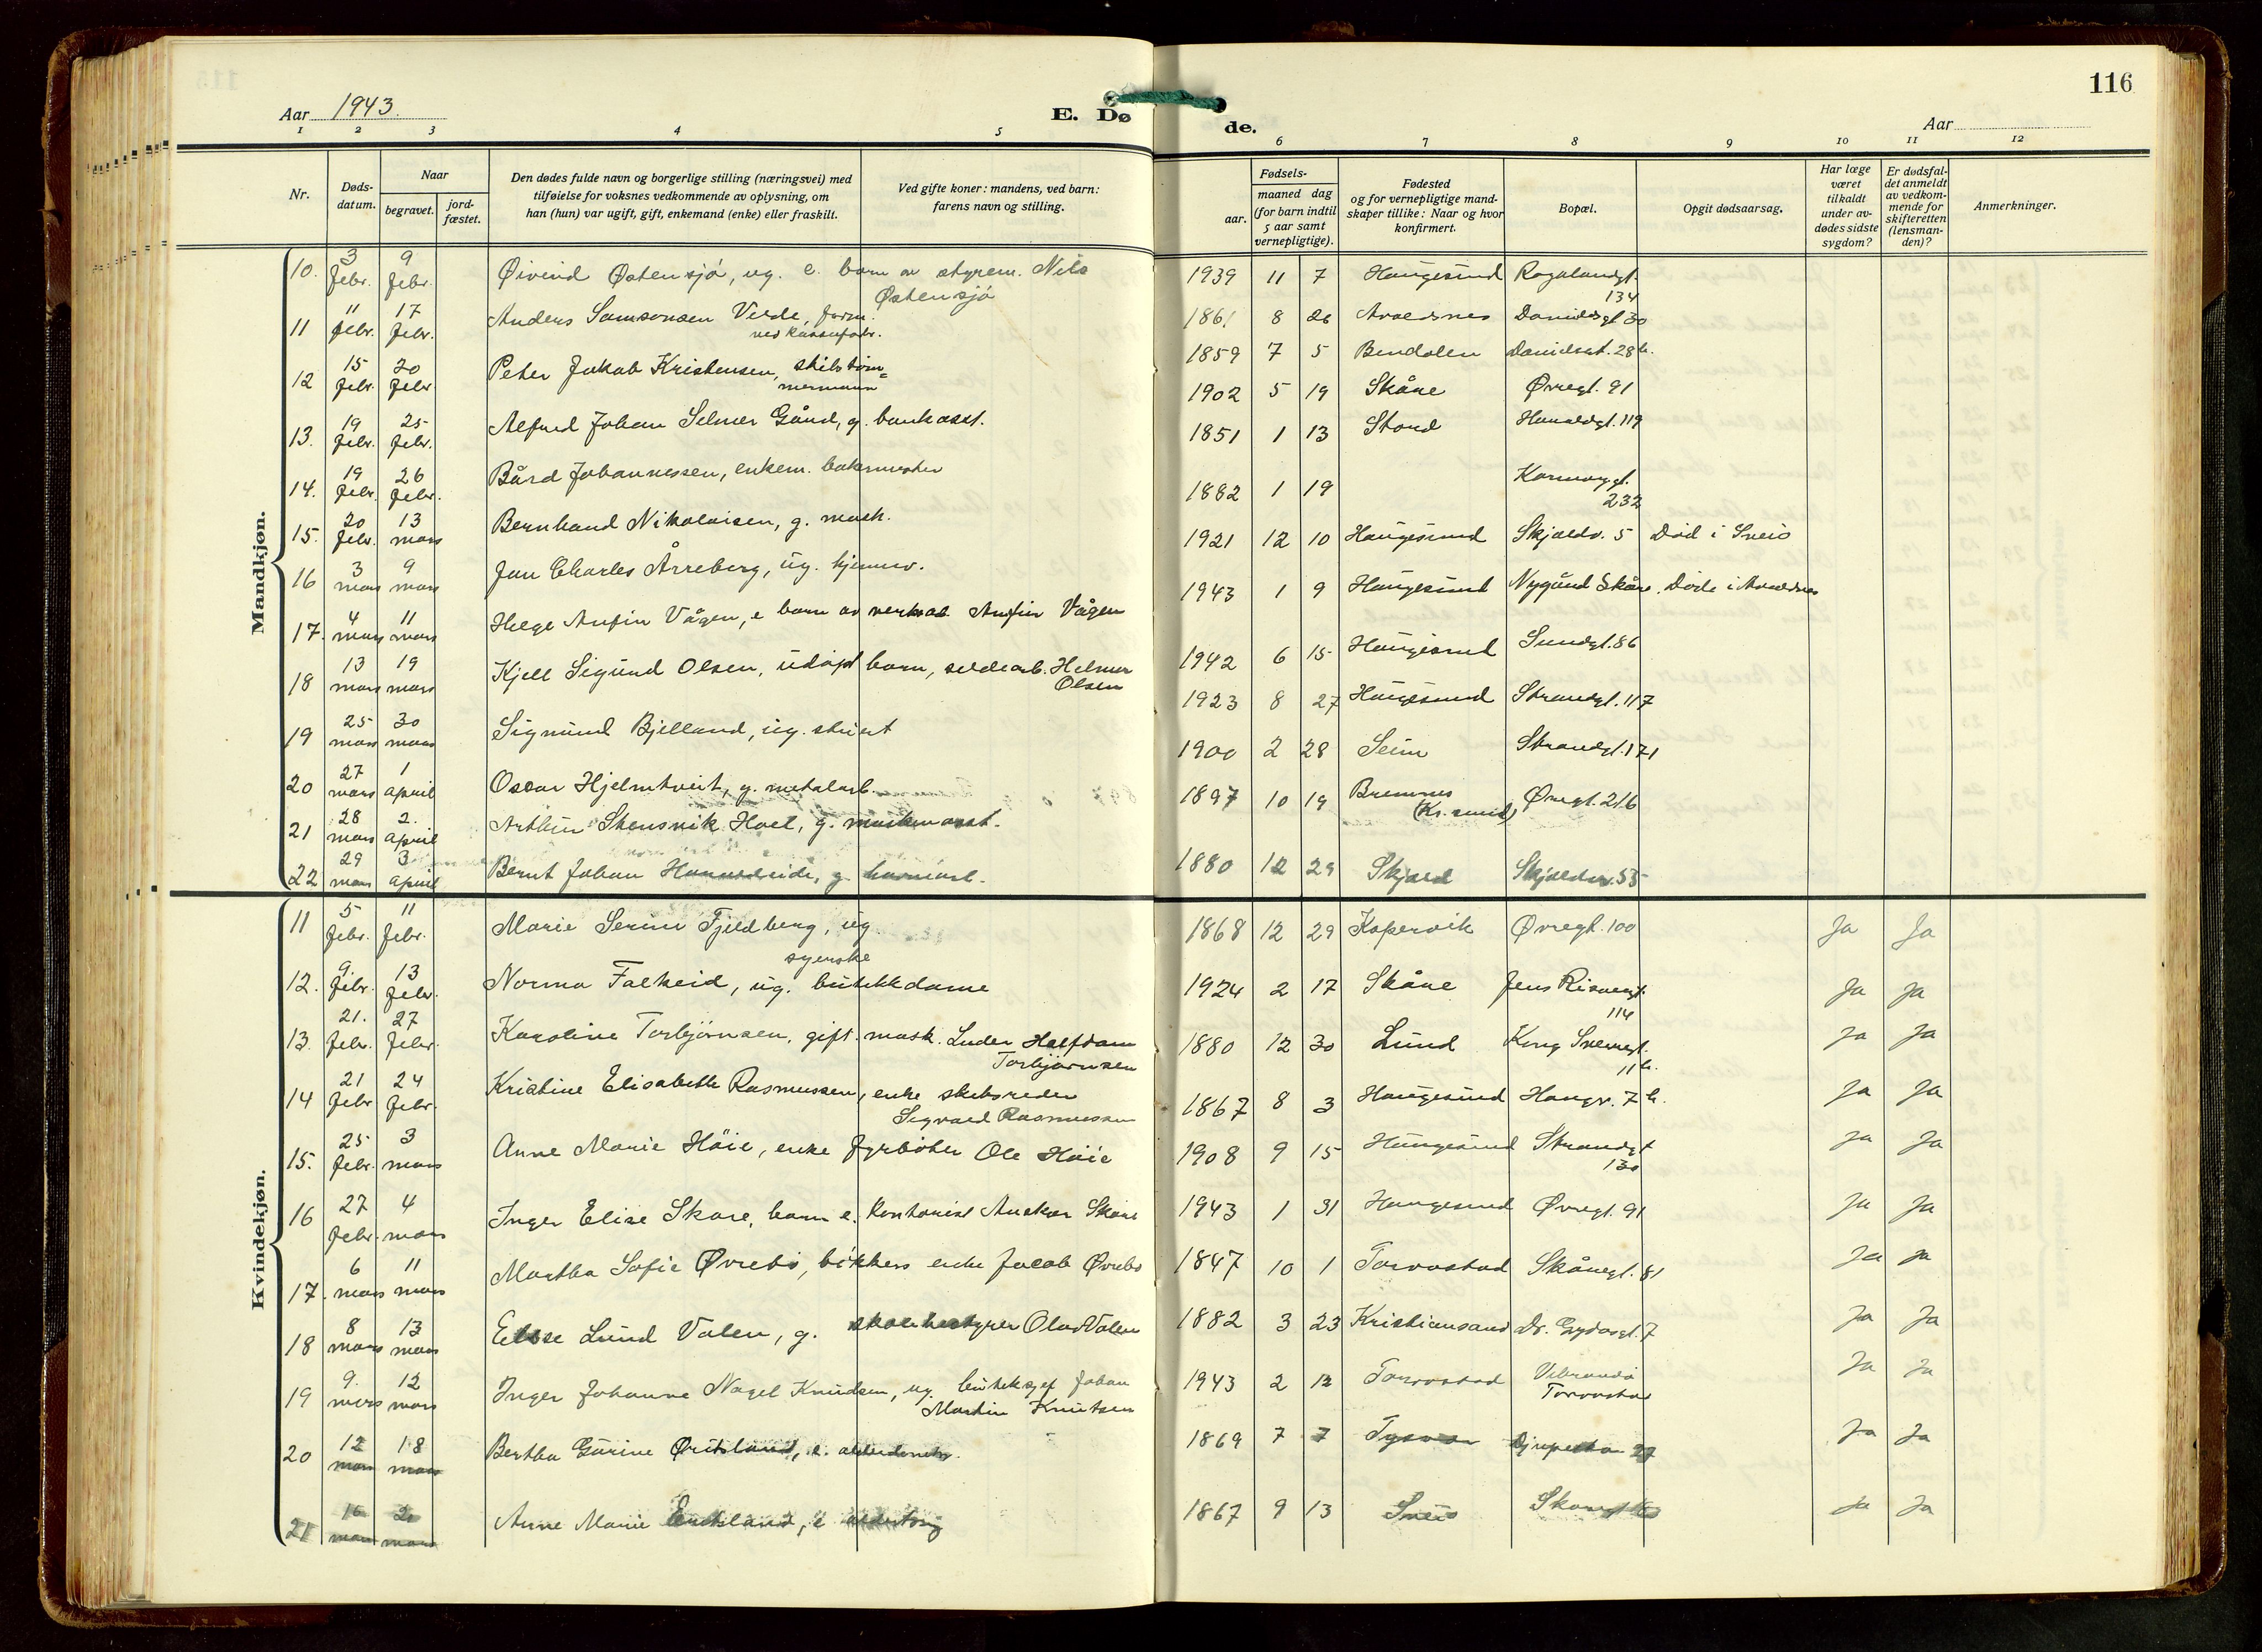 116
Aar 1943.
E. Dø
de.
Aar
1 2 3 4 5
6 7 8 9 10 11 12
Nr.
Døds-
datum.
Naar
begravet.
jord-
fæstet.
Den dødes fulde navn og borgerlige stilling (næringsvei) med
tilføielse for voksnes vedkommende av oplysning, om
han (hun) var ugift, gift, enkemand (enke) eller fraskilt.
Ved gifte koner: mandens, ved barn:
farens navn og stilling.
Fødsels-
aar.
maaned dag
(for barn indtil
5 aar samt
vernepligtige).
Fødested
og for vernepligtige mand-
skaper tillike: Naar og hvor
konfirmert.
Bopæl.
Opgit dødsaarsag.
Har læge
været
tilkaldt
under av-
dødes sidste
sygdom?
Er dødsfal-
det anmeldt
av vedkom-
mende for
skifteretten
(lensman-
den)?
Anmerkninger.
Mandkjøn.
10. 3 febr. 9 febr. Øivind Østensjø, ug. e. barn av styrem. Nils Østensjø 1939 11 7 Haugesund Rogalandgt. 134
11 11 febr. 17 febr. Anders Samsonsen Velde, form. 1861 8 26 Avaldsnes Danielsgt 30
12 15 febr. 20 febr. Peter Jakob Kristensen, skibstøm=mermann 1859 7 5 Danielsgt. 28b.
13. 19 febr. 25 febr. Alfred Johan Selmer Gånd, g. bankasst. 1902 5 19 Skåre Øvregt. 91
14. 19 febr. 26 febr. Bård Johannessen, enkem. bakermester 1851 1 13 Stord Haraldgt. 119
15. 20 febr. 13 mars Bernhard Nikolaisen, g. mask. 1882 1 19 Karmøygt. 232
16 3 mars 9 mars Jan Charles Årreberg, ug. hjemmev. 1921 12 10 Haugesund Skjoldv. 5 Død i Sveio
17. 4 mars 11 mars Helge Anfin Vågen, e barn av Anfin Vågen 1943 1 9 Haugesund Nygård Skåre. Døde i Avaldsnes
18 13 mars 19 mars Kjell Sigurd Olsen, udøpt barn, sildearb. Helmer Olsen 1942 6 15 Haugesund Sundgt. 86
19 25 mars 30 mars Sigmund Bjelland, ug. 1923 8 27 Haugesund Strandgt. 117
20 27 mars 1 april Oscar Hjelmtveit, g. metalarb. 1900 2 28 Seim Strandgt. 171
21 28 mars 2. april Arthur Stensvik Hoel, g. maskinasst. 1897 10 19 Bremnes (Kr.sund) Øvregt. 216
22 29 mars 3 april Bernt Johan g. 1880 12 29 Skjold Skjoldv. 55
Kvindekjøn.
11 5 febr. 11 febr. Marie Serine Fjeldberg, ug. syerske 1868 12 29 Kopervik Øvregt. 100 Ja Ja
12. 9. febr. 13 febr. Norma Falkeid, ug. butikkdame 1924 2 17 Skåre Jens Risøengt. 114 Ja Ja
13. 21. febr. 27 febr. Karoline Torbjørnsen, gift. mask. Luder Halfdan Torbjørnsen 1880 12 30 Lund Kong Sverregt. 11 b. Ja Ja
14 21 febr 24 febr. Kristine Elisabeth Rasmussen, enke skibsreder Sigvald Rasmussen 1867 8 3 Haugesund Haugv. 7 b. Ja Ja
15. 25 febr. 3 mars Anne Marie Høie, enke fyrbøter Ole Høie 1908 9 15 Haugesund Strandgt 130 Ja Ja
16 27 febr. 4 mars Inger Elise Skare, barn e. kontorist Anskar Skare 1943 1 31 Haugesund Øvregt. 91 Ja Ja
17. 6 mars 11 mars Martha Sofie Øvrebø, bøkkers enke Jacob Øvrebø 1847 10 1 Torvastad Skåregt. 81 Ja Ja
18 8 mars 13 mars Lund Valen, g. skolebestyrer Olav Valen 1882 3 23 Kristiansand Dr. Gydasgt. 7 Ja Ja
19 9. mars 12 mars Inger Johanne Nagel Knudsen, ug. butiksjef Johan Martin Knutsen 1943 2 12 Torvastad Vibrandø Torvastad Ja Ja
20 12 mars 18 mars Bertha Gurine e. 1869 7 7 Tysvær 27 Ja Ja
21 16 mars mars Anne Marie e 1867 9 13 Sveio Ja Ja